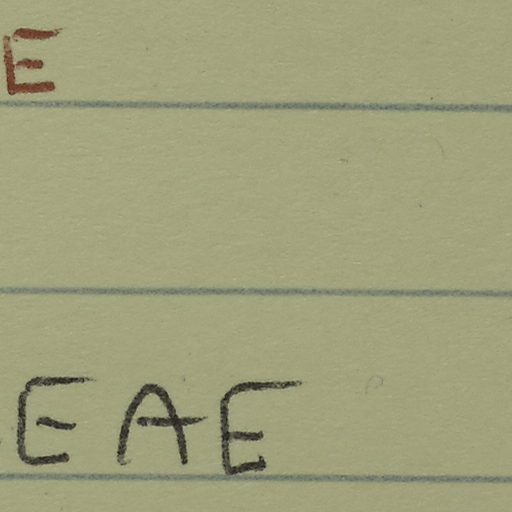 E
EAE